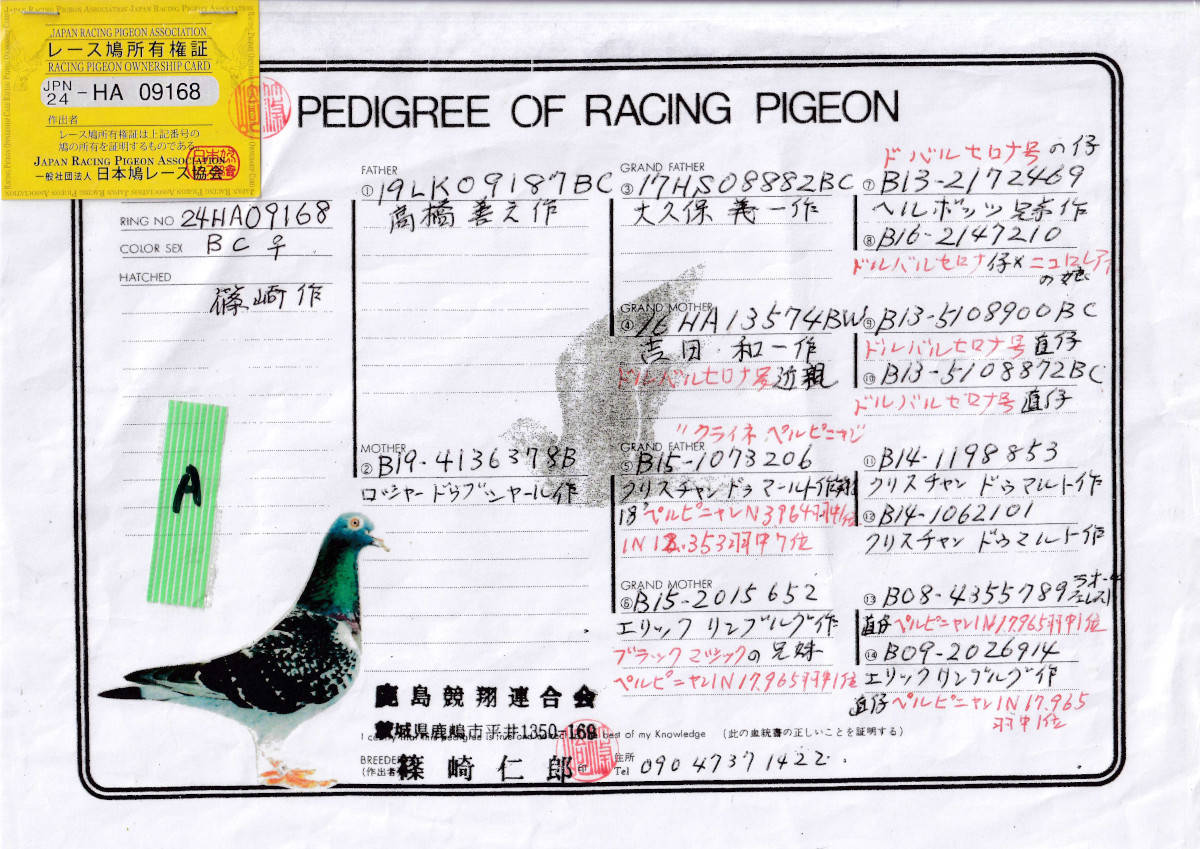 JAPAN RACING PIGEON ASSOCIATION
レース鳩所有権証
RACING PIGEON OWNERSHIP CARD
JPN 24 - HA 09168
作出者
レース鳩所有権証は上記番号の
鳩の所有を証明するものである
JAPAN RACING PIGEON ASSOCIATION
一般社団法人 日本鳩レース協会
PEDIGREE OF RACING PIGEON
RING NO 24HA09168
COLOR SEX B C ♀
HATCHED
篠崎作
A
FATHER
① 19LK09187BC
高橋善之作
MOTHER
② B19-4136378B
ロジャードゥブシャール作
GRAND FATHER
③ 17HS08882BC
大久保義一作
GRAND MOTHER
④ 16HA13574BW
吉田和一作
ドルバルセロナ号近親
"クライネ ペルピニャン"
GRAND FATHER
⑤ B15-1073206
クリスチャンドゥマールト作
18'ペルピニャンN3964羽中1位
IN 353羽中7位
GRAND MOTHER
⑥ B15-2015652
エリック リンブルグ作
ブラックマジックの兄妹
ペルピニャンIN17.965羽中1位
ドバルセロナ号の仔
⑦ B13-2172469
ヘルボッツ兄弟作
⑧ B16-2147210
ドルバルセロナ仔×ニュロレアテ
の娘
⑨ B13-5108900BC
ドルバルセロナ号直仔
⑩ B13-5108872BC
ドルバルセロナ号 直仔
⑪ B14-1198853
クリスチャン ドゥマルト作
⑫ B14-1062101
クリスチャン ドゥマルト作
⑬ B08-4355789
直仔ペルピニャンIN17.965羽中1位
⑭ B09-2026914
エリックリンブルグ作
直仔ペルピニャンIN17.965
羽中1位
鹿島競翔連合会
茨城県鹿嶋市平井1350-168
best of my Knowledge (此の血統書の正しいことを証明する)
BREEDER
(作出者)
篠崎仁郎
印
住所
Tel 090 4737 1422